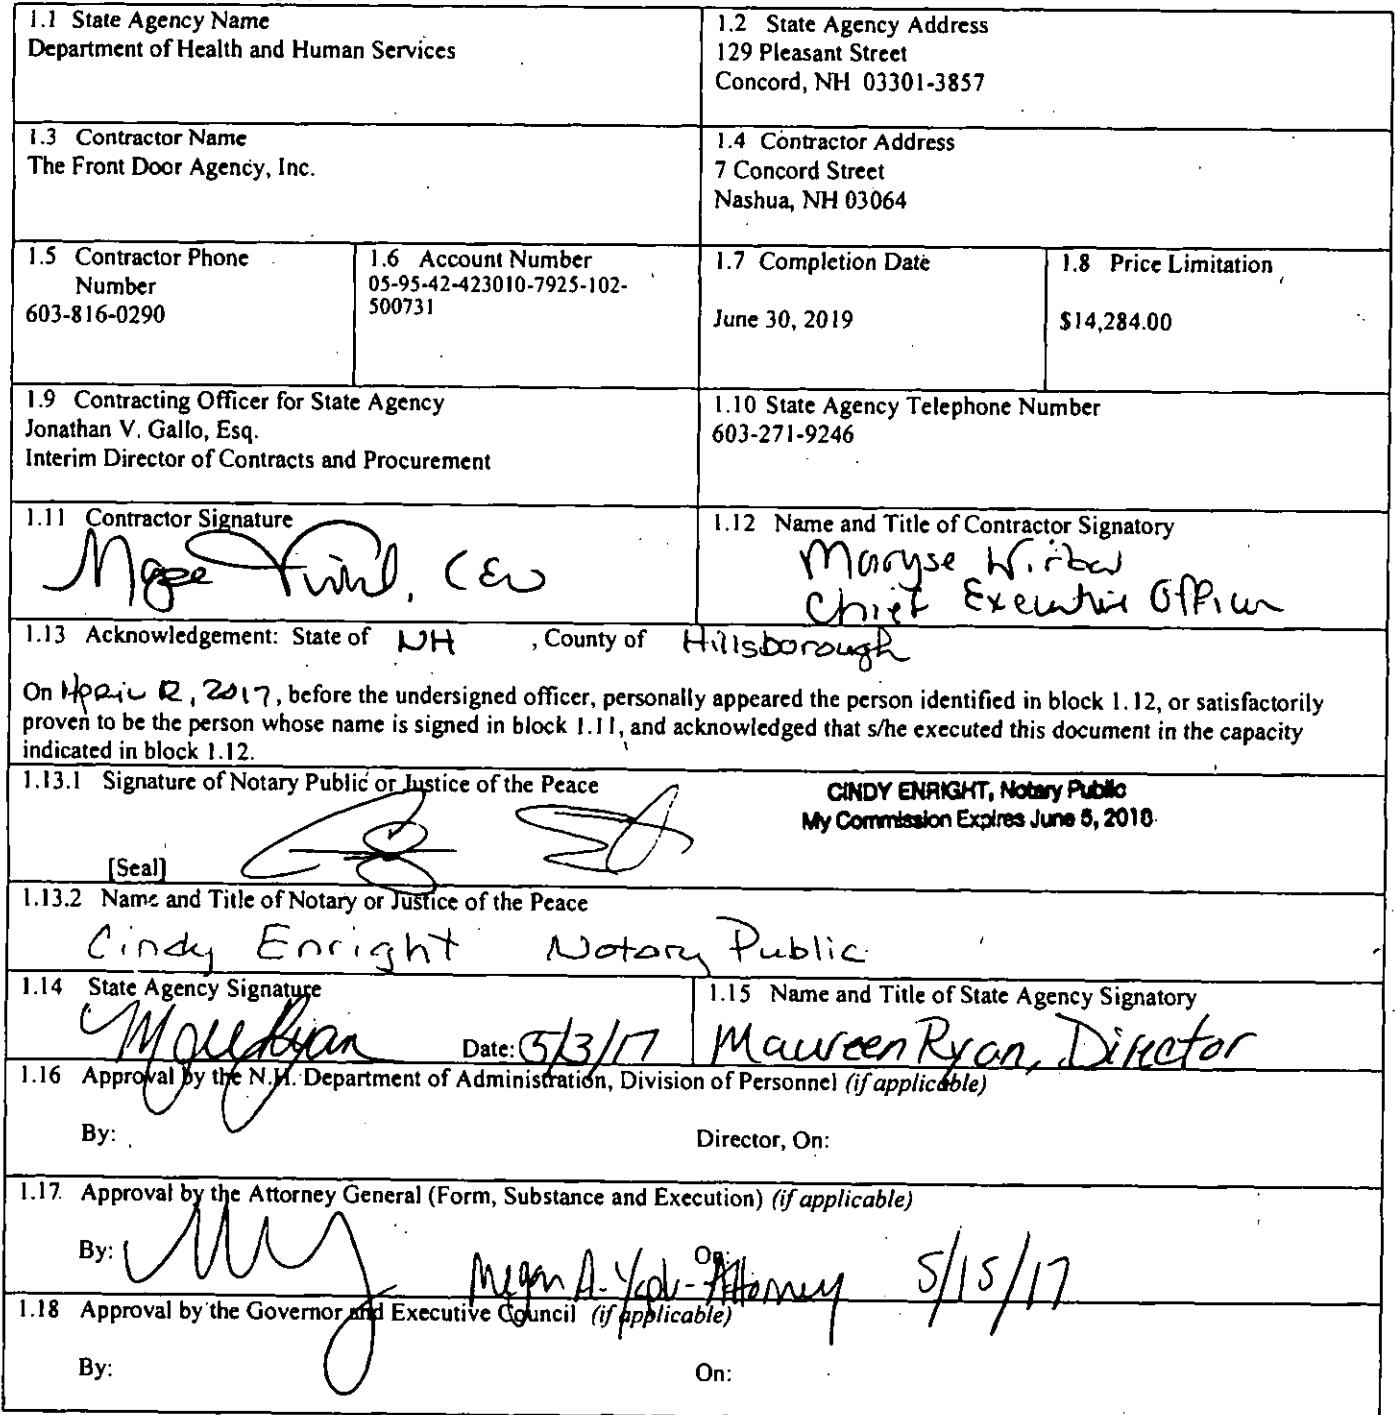 1.1 State Agency Name
Department of Health and Human Services
1.2 State Agency Address
129 Pleasant Street
Concord, NH 03301-3857
1.3 Contractor Name
The Front Door Agency, Inc.
1.4 Contractor Address
7 Concord Street
Nashua, NH 03064
1.5 Contractor Phone
Number
603-816-0290
1.6 Account Number
05-95-42-423010-7925-102-
500731
1.7 Completion Date
June 30, 2019
1.8 Price Limitation
$14,284.00
1.9 Contracting Officer for State Agency
Jonathan V. Gallo, Esq.
Interim Director of Contracts and Procurement
1.10 State Agency Telephone Number
603-271-9246
1.11 Contractor Signature
, CEO
1.12 Name and Title of Contractor Signatory
Maryse
Chief Executive Officer
1.13 Acknowledgement: State of NH , County of Hillsborough
On April 12, 2017, before the undersigned officer, personally appeared the person identified in block 1.12, or satisfactorily
proven to be the person whose name is signed in block 1.11, and acknowledged that s/he executed this document in the capacity
indicated in block 1.12.
1.13.1 Signature of Notary Public or Justice of the Peace
CINDY ENRIGHT, Notary Public
My Commission Expires June 5, 2018
[Seal]
1.13.2 Name and Title of Notary or Justice of the Peace
Cindy Enright Notary Public
1.14 State Agency Signature
Date: 5/3/17
1.15 Name and Title of State Agency Signatory
Maureen Ryan, Director
1.16 Approval by the N.H. Department of Administration, Division of Personnel (if applicable)
By: Director, On:
1.17 Approval by the Attorney General (Form, Substance and Execution) (if applicable)
By: On:
Megan A. - Attorney 5/15/17
1.18 Approval by the Governor and Executive Council (if applicable)
By: On: